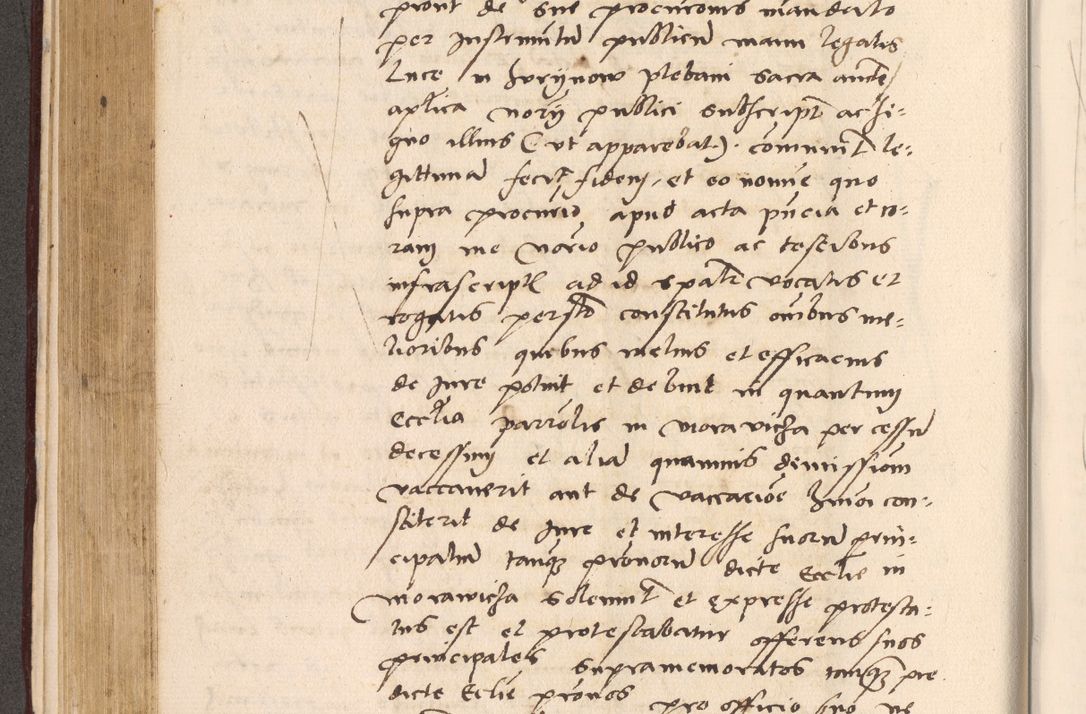 prout de sue procurcionis mandato
per Instrumentu publicum manu legalis
Luce in Gorzynow plebani sacra aucte
aplica norij publici subscript ac si-
gno illius (ut apparebat). comunit le-
gittimam fecit fidem, et eo nomine quo
supra procurio apud acta pncia et co-
ram me nario publico ac testibus
infrascript ad id spalr vocatis et
rogatis personalr constitutus omibus me-
lioribus quibus melius et efficacius
de Jure potuit et debuit in quantum
Ecclia parrolis in morawicza per cessum
decessum et aliam quamuis dimissiom
vaccauerit aut de vaccacioe hmoi con-
stiterit de Jure et interesse suorum prin-
cipalium tanq pronorum dicte Ecclie in
morawicza solemnit et expresse protesta-
tus est et protestabatur offerens suos
principales supramemoratos tanq pre
dicte Ecclie pronos pro officio suo ne